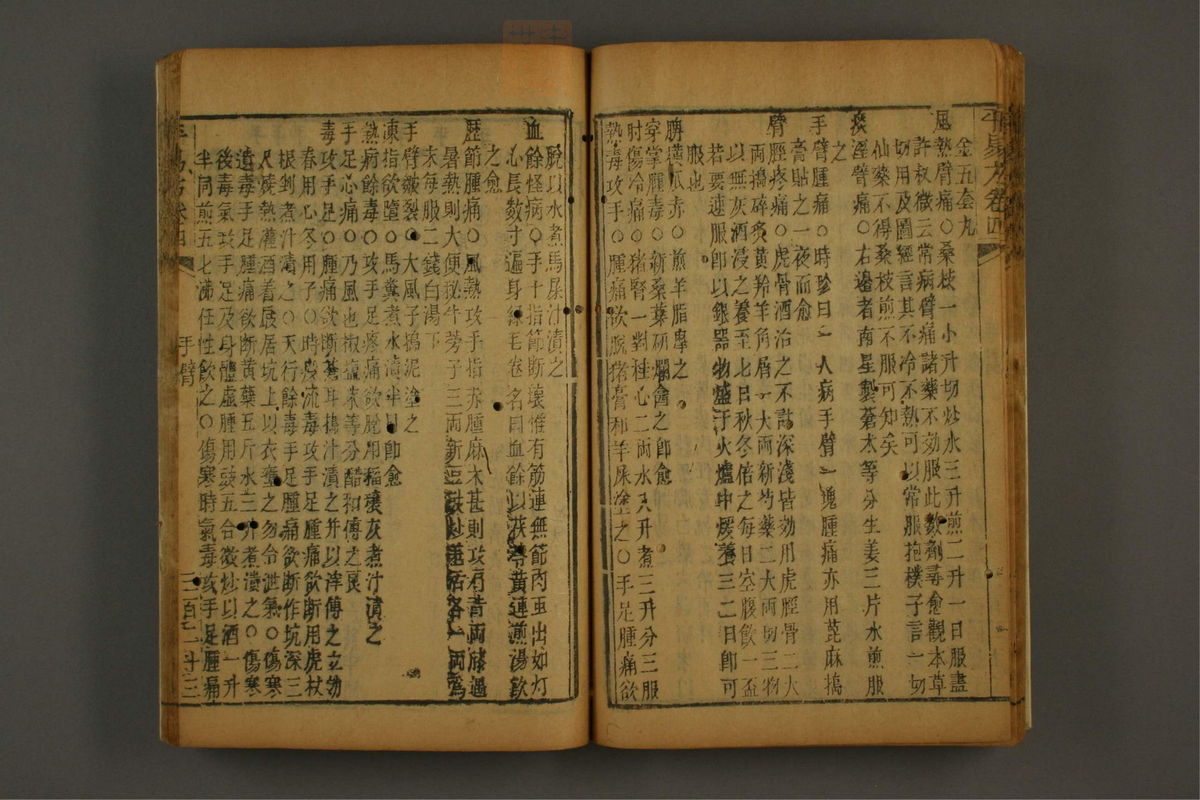 金五合丸
風熱臂痛○桑枝一小升切炒水三升煎二升一日服盡
許叔微云常病臂痛諸藥不効服此數劑尋愈觀本草
切用及圖經言其不冷不熱可以常服抱樸子言一切
仙藥不得桑枝煎不服可知矣
痰溼臂痛○右邊者南星製蒼朮等分生姜三片水煎服
之
手臂腫痛○時珍曰一人病手臂一塊腫痛亦用蓖麻搗
膏貼之一夜而愈
臂脛疼痛○虎骨酒治之不計深淺皆効用虎脛骨二大
兩搗碎炙黃羚羊角屑一大兩新芍藥二大兩切三物
以無灰酒浸之養至七日秋冬倍之每日空腹飲一盃
若要速服卽以銀器物盛于火爐中煖養三二日卽可
服也
胯瓜赤○煎羊脂摩之
穿掌腫毒○新桑葉研爛盦之卽愈
肘傷冷痛○猪腎一對桂心二兩水八升煮三升分三服
熱毒攻手○腫痛欲脫猪膏和羊屎塗之○手足腫痛欲
脫以水煮馬屎汁漬之
血餘怪病○手十指節斷壞惟有筋連無節肉虫出如灯
心長数寸遍身綠毛卷名曰血餘以茯苓黃連煎湯飲
之愈
歷節腫痛○風熱攻手指赤腫麻木甚則攻肩背兩膝遇
暑熱則大便秘牛蒡子三兩新豆豉炒羌活各一兩爲
末每服二錢白湯下
手臂皴裂○大風子搗泥塗之
凍指欲墮○馬糞煮水漬半日卽愈
熱病餘毒○攻手足疼痛欲脫用稻穰灰煮汁漬之
手足心痛○乃風也椒鹽末等分醋和傅之良
毒攻手足○腫痛欲斷蒼耳搗汁漬之并以滓傅之立効
春用心冬用子○時疫流毒攻手足腫痛欲斷用虎杖
根剉煮汁漬之○天行餘毒手足腫痛欲斷作坑深三
尺燒熱灌酒着屐居坑上以衣壅之勿令泄氣○傷寒
遺毒手足腫痛欲斷黃蘗五斤水三升煮漬之○傷寒
後毒氣攻手足及身體虛腫用豉五合微炒以酒一升
半同煎五七沸任性飲之○傷寒時氣毒攻手足腫痛
手臂